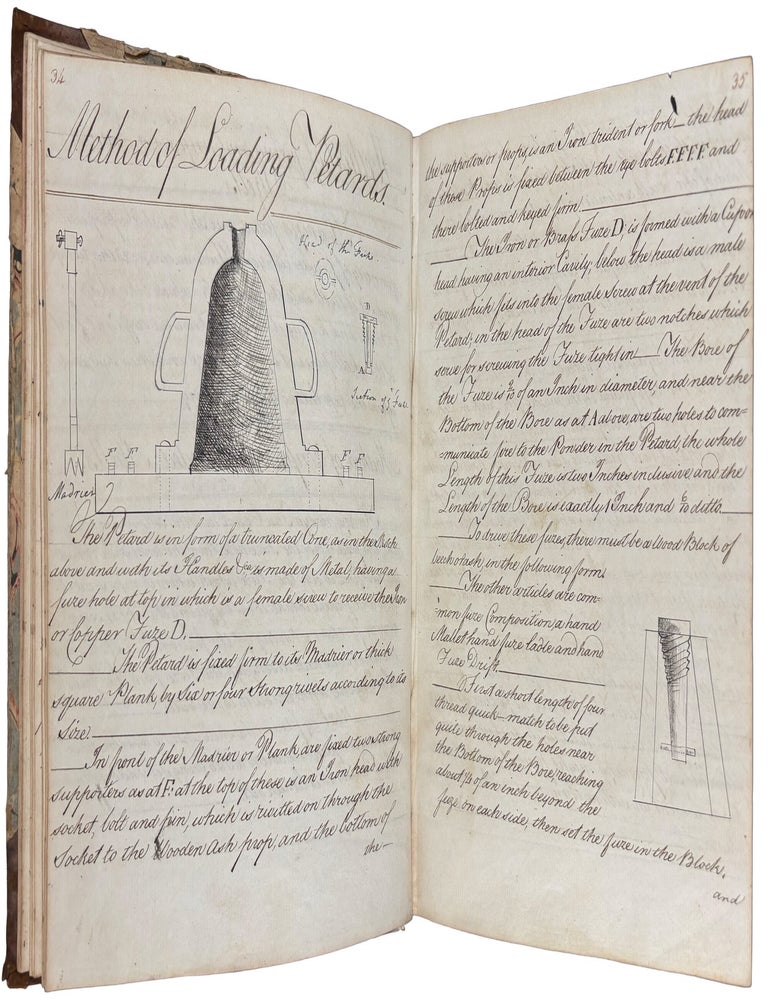 34
Method of Loading Petards.
Head of the Fuze.
D
A
Section of ye Fuze
F F
F F
Madrier
The Petard is in form of a truncated Cone, as in the Sketch
above and with its Handles &ca is made of Metal, having a
fuze hole at top in which is a female screw to receive the Iron
or Copper Fuze D.
The Petard is fixed firm to its Madrier or thick
square Plank by Six or four Strong rivets according to its
size.
In front of the Madrier or Plank are fixed two strong
supporters as at F: at the top of these is an Iron head with
socket, bolt and pin, which is rivitted on through the
Socket to the Wooden Ash prop, and the bottom of
the
35
the supporters or props, is an Iron trident or fork — the head
of these Props is fixed between the eye bolts FFFF and
there bolted and keyed firm.
The Iron or Brass Fuze D, is formed with a Cup or
head having an interior Cavity, below the head is a male
screw which fits into the female screw at the vent of the
Petard; in the head of the Fuze are two notches which
serve for screwing the Fuze tight in — The Bore of
the Fuze is of an Inch in diameter, and near the
Bottom of the Bore as at A above, are two holes to com=
municate fire to the Powder in the Petard, the whole
Length of this Fuze is two Inches inclusive, and the
Length of the Bore is exactly 1 Inch and ditto.
To drive these fuzes, there must be a Wood Block of
beech or ash, in the following form.
The other articles are com=
mon fuze Composition, a hand
Mallet hand fuze ladle and hand
Fuze Drift
First a short length of four
thread quick-match to be put
quite through the holes near
the Bottom of the Bore, reaching
about of an inch beyond the
fuze on each side, then set the fuze in the Block,
and